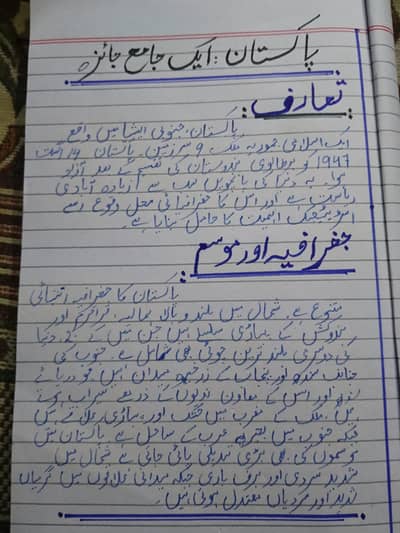 پاکستان: ایک جامع جائزہ
تعارف:
پاکستان، جنوبی ایشیا میں واقع
ایک اسلامی جمہوریہ ملک و سرزمین۔ پاکستان 14 اگست
1947 کو برطانوی ہندوستان کی تقسیم کے بعد آزاد
ہوا۔ یہ دنیا کی پانچویں سب سے زیادہ آبادی
ریاست ہے اور اس کا جغرافیائی محل وقوع اسے
اسٹریٹجک اہمیت کا حامل بناتا ہے۔
جغرافیہ اور موسم
پاکستان کا جغرافیہ انتہائی
متنوع ہے۔ شمال میں بلند و بالا ہمالیہ، قراقرم اور
ہندوکش کے پہاڑی سلسلے ہیں جن میں کے ٹو، دنیا
کی دوسری بلند ترین چوٹی بھی شامل ہے۔ جنوب کی
جانب سندھ اور پنجاب کے زرخیز میدان ہیں، جو دریائے
سندھ اور اس کے معاون ندیوں کے ذریعے سیراب ہوتے
ہیں۔ ملک کے مغرب میں خشک اور پہاڑی علاقے ہیں
جبکہ جنوب میں بحیرہ عرب کے ساحل ہے۔ پاکستان میں
موسموں کی بھی بڑی تبدیلی پائی جاتی ہے شمال میں
شدید سردی اور برف باری جبکہ میدانی علاقوں میں گرمیاں
شدید اور سردیاں معتدل ہوتی ہیں۔